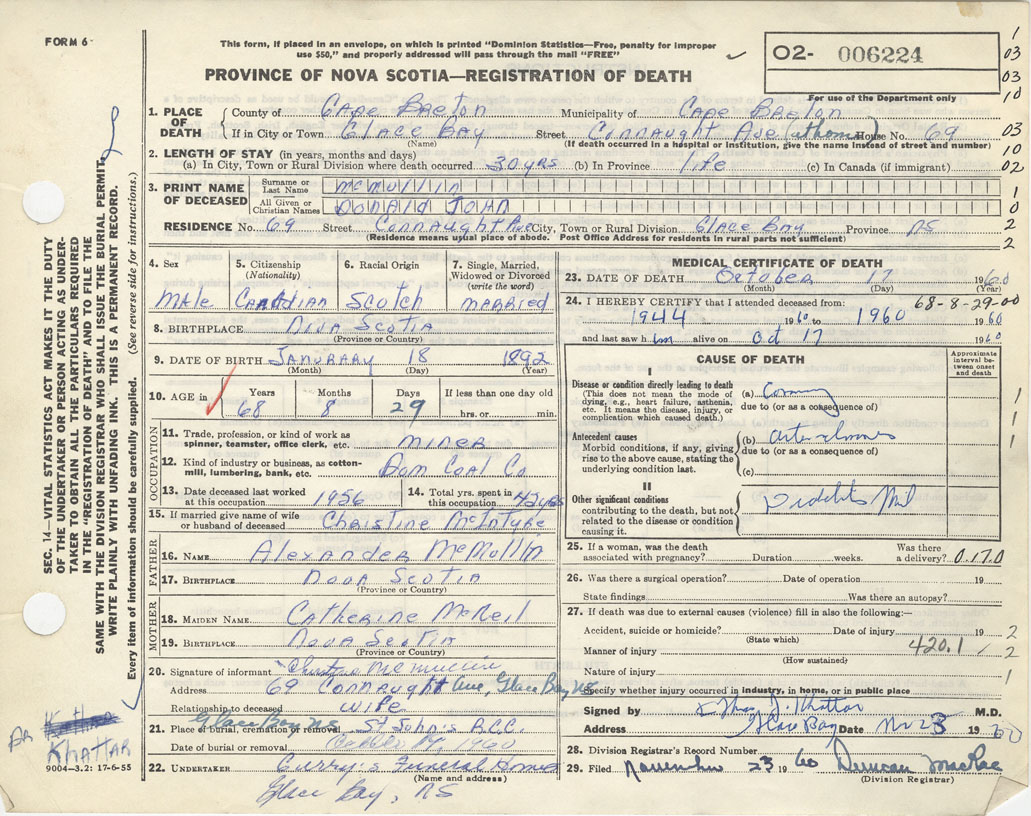 FORM 6
This form, if placed in an envelope, on which is printed "Dominion Statistics—Free, penalty for improper
use $50," and properly addressed will pass through the mail "FREE"
PROVINCE OF NOVA SCOTIA—REGISTRATION OF DEATH
O2- 006224
For use of the Department only
1
03
03
10
03
10
02
1
0
2
2
SEC. 14—VITAL STATISTICS ACT MAKES IT THE DUTY
OF THE UNDERTAKER OR PERSON ACTING AS UNDER-
TAKER TO OBTAIN ALL THE PARTICULARS REQUIRED
IN THE "REGISTRATION OF DEATH" AND TO FILE THE
SAME WITH THE DIVISION REGISTRAR WHO SHALL ISSUE THE BURIAL PERMIT.
WRITE PLAINLY WITH UNFADING INK. THIS IS A PERMANENT RECORD.
Every item of information should be carefully supplied. (See reverse side for instructions.)
1. PLACE OF DEATH
County of Cape Breton Municipality of Cape Breton
If in City or Town Glace Bay Street Connaught Ave (at home) House No. 69
(Name) (If death occurred in a hospital or institution, give the name instead of street and number)
2. LENGTH OF STAY (in years, months and days)
(a) In City, Town or Rural Division where death occurred 30 yrs (b) In Province life (c) In Canada (if immigrant)
3. PRINT NAME OF DECEASED
Surname or Last Name McMULLIN
All Given or Christian Names DONALD JOHN
RESIDENCE No. 69 Street Connaught Ave City, Town or Rural Division Glace Bay Province NS
(Residence means usual place of abode. Post Office Address for residents in rural parts not sufficient)
4. Sex 5. Citizenship (Nationality) 6. Racial Origin 7. Single, Married, Widowed or Divorced (write the word)
MALE Canadian Scotch MARRIED
8. BIRTHPLACE Nova Scotia
(Province or Country)
9. DATE OF BIRTH Janurary 18 1892
(Month) (Day) (Year)
10. AGE in Years Months Days If less than one day old
68 8 29 hrs. or min.
OCCUPATION
11. Trade, profession, or kind of work as spinner, teamster, office clerk, etc. MINER
12. Kind of industry or business, as cotton-mill, lumbering, bank, etc. Dom Coal Co
13. Date deceased last worked at this occupation 1956 14. Total yrs. spent in this occupation 45 yrs
15. If married give name of wife or husband of deceased Christine McIntyre
FATHER
16. NAME Alexander McMullin
17. BIRTHPLACE Nova Scotia
(Province or Country)
MOTHER
18. MAIDEN NAME Catherine McNeil
19. BIRTHPLACE Nova Scotia
(Province or Country)
20. Signature of informant Christine McMullin
Address 69 Connaught Ave, Glace Bay NS
Relationship to deceased Wife
21. Place of burial, cremation or removal Glace Bay NS St John's R.C.C.
Date of burial or removal October 1960
22. UNDERTAKER Curry's Funeral Home
(Name and address)
Glace Bay, NS
DR
KHATTAR
9004—3.2: 17-6-55
MEDICAL CERTIFICATE OF DEATH
23. DATE OF DEATH October 17 1960
(Month) (Day) (Year)
68-8-29-00
24. I HEREBY CERTIFY that I attended deceased from:
1944 1960 to 1960 1960
and last saw him alive on Oct 17 1960
CAUSE OF DEATH
Approximate interval between onset and death
I
Disease or condition directly leading to death
(This does not mean the mode of dying, e.g., heart failure, asthenia, etc. It means the disease, injury, or complication which caused death.)
(a)
due to (or as a consequence of)
Antecedent causes
Morbid conditions, if any, giving rise to the above cause, stating the underlying condition last.
(b)
due to (or as a consequence of)
(c)
II
Other significant conditions
contributing to the death, but not related to the disease or condition causing it.
Diabetes Mel
1
1
1
25. If a woman, was the death associated with pregnancy? Duration weeks. Was there a delivery? 0.17.0
26. Was there a surgical operation? Date of operation 19
State findings Was there an autopsy?
27. If death was due to external causes (violence) fill in also the following:—
Accident, suicide or homicide? Date of injury 19 2
(State which)
Manner of injury 420.1 2
(How sustained)
Nature of injury 1
Specify whether injury occurred in industry, in home, or in public place
Signed by J. Khattar M.D.
Address Glace Bay Date Nov 23 1960
28. Division Registrar's Record Number
29. Filed November 23 1960 Duncan MacRae
(Division Registrar)